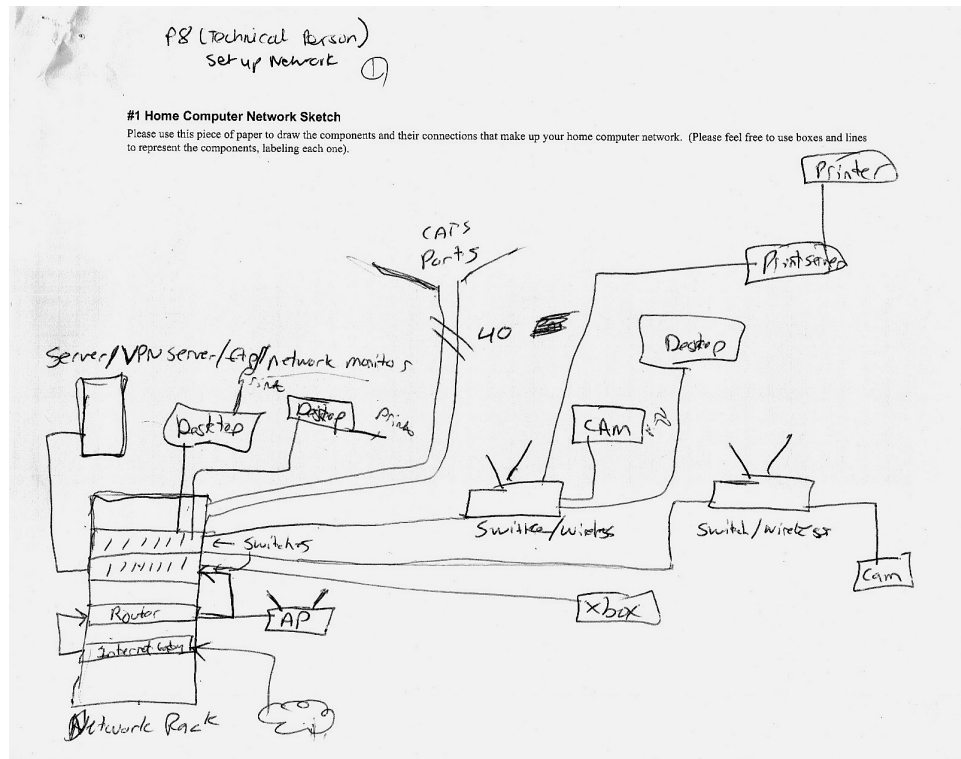 P8 (Technical Person)
Set up Network
1
#1 Home Computer Network Sketch
Please use this piece of paper to draw the components and their connections that make up your home computer network. (Please feel free to use boxes and lines
to represent the components, labeling each one).
Printer
CAT5
Ports
Printserver
40
Desktop
Server/VPN server/ftp/network monitor
Print
Desktop
Desktop
Printer
CAM
Switch/wireless
Switch/wireless
← Switches
Cam
Router
AP
Xbox
Internet
Network Rack